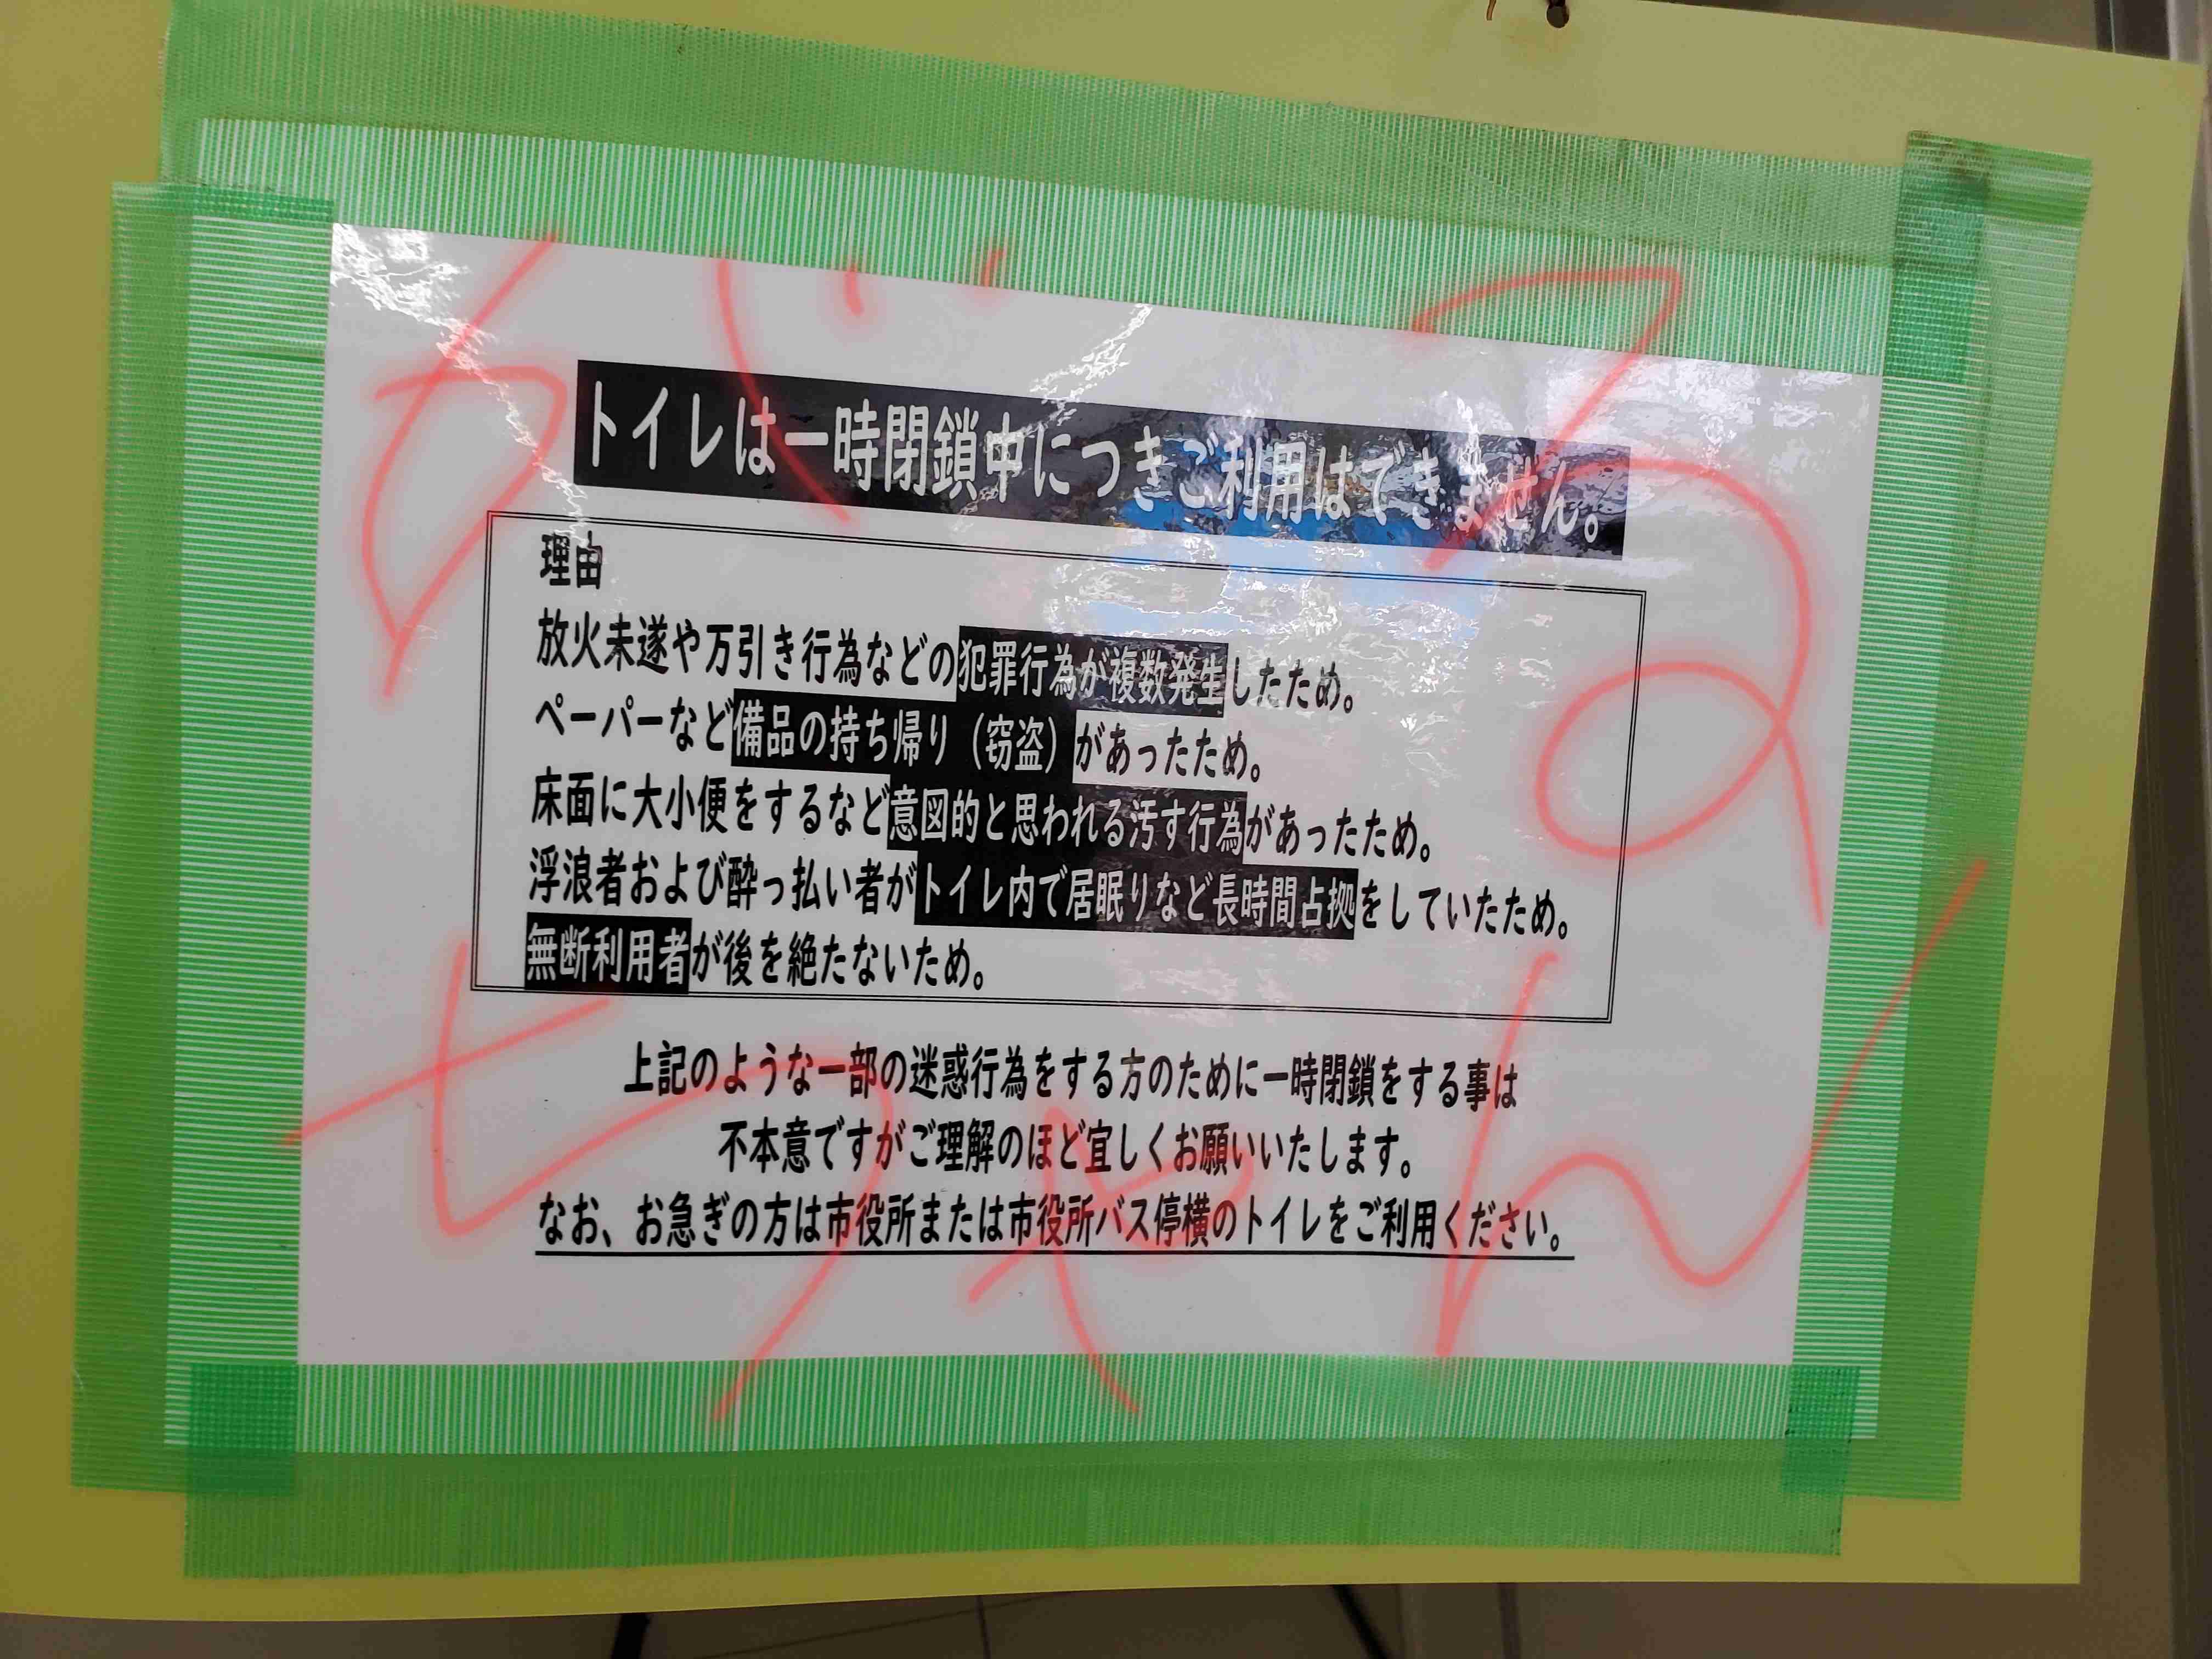 トイレは一時閉鎖中につきご利用はできません。
理由
放火未遂や万引き行為などの犯罪行為が複数発生したため。
ペーパーなど備品の持ち帰り（窃盗）があったため。
床面に大小便をするなど意図的と思われる汚す行為があったため。
浮浪者および酔っ払い者がトイレ内で居眠りなど長時間占拠をしていたため。
無断利用者が後を絶たないため。
上記のような一部の迷惑行為をする方のために一時閉鎖をする事は
不本意ですがご理解のほど宜しくお願いいたします。
なお、お急ぎの方は市役所または市役所バス停横のトイレをご利用ください。